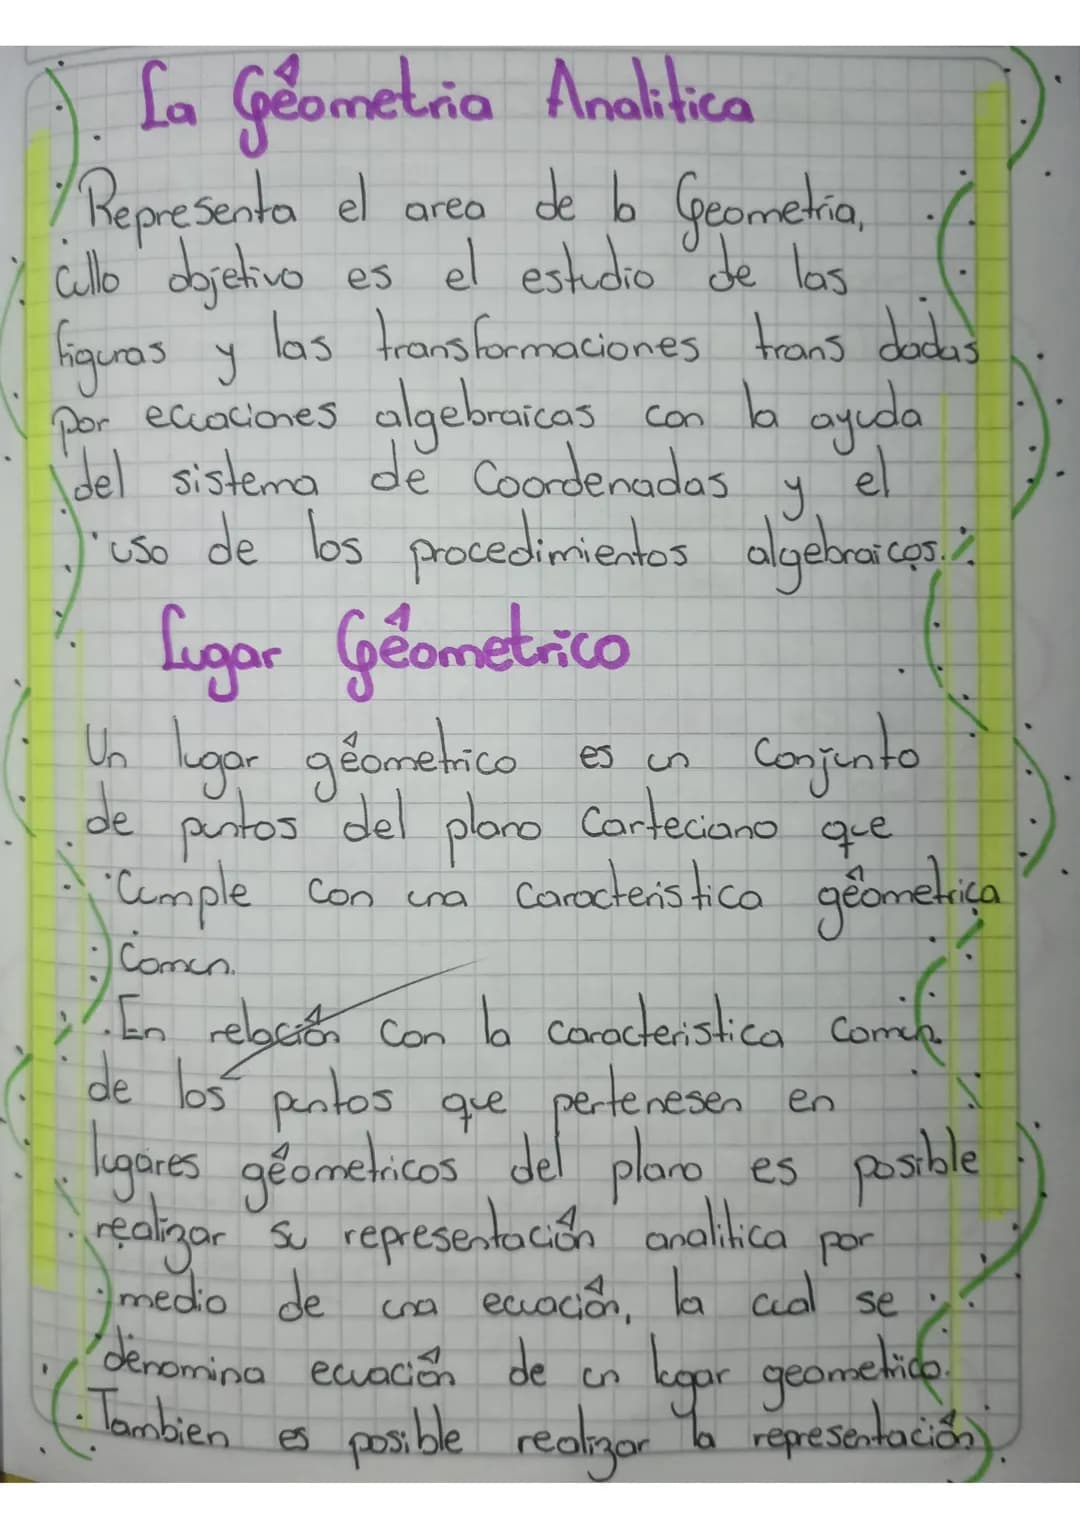 La Geometria Analitica
Representa el area de la Geometria,
cullo objetivo es el estudio de las
figuras y las transformaciones trans dadas
por ecuaciones algebraicas con la ayuda
del sistema de Coordenadas y el
uso de los procedimientos algebraicos.
Lugar Geometrico
Un lugar geometrico es un Conjunto
de puntos del plano Carteciano que
Cumple con una Caracteristica geometrica
Comun.
En relación con la caracteristica comun
de los puntos que pertenesen en
lugares geometricos del plano es posible
realizar su representación analitica por
medio de una ecuación, la cual se
denomina ecuación de un lugar geometrico.
Tambien es posible realizar la representación